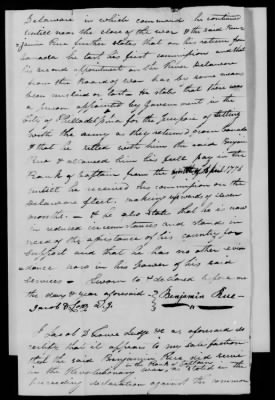 Delaware in which command he continued
untill near the close of the war & the said Benja
Rue further states that on his return from
Canada he lost his first commission and that
his second appointment on the River Delaware
from the Board of war has by some means
been mislaid or lost – He states that there was
a person appointed by Government in the
City of Philadelphia for the purpose of settling
with the army as they returned from Canada
& that he settled with him the said Benjamin
Rue & allowed him his full pay in the
Rank of Captain from the of April 1776
untill he received his commission on the
delaware fleet, making upwards of seven
months. – & he also states that he is now
in reduced circumstances and stands in
need of the assistance of his country for
support and that he has no other evi-
dence now in his power of his said
services – Sworn to & declared before me
the day & year aforesaid Benjamin Rue
Jacob D
I Jacob D Judge &c as aforesaid do
certify that it appears to my satisfaction
that the said Benjamin Rue did serve
in the Rank of Captain
in the Revolutionary war, as stated in the
preceeding declaration against the common